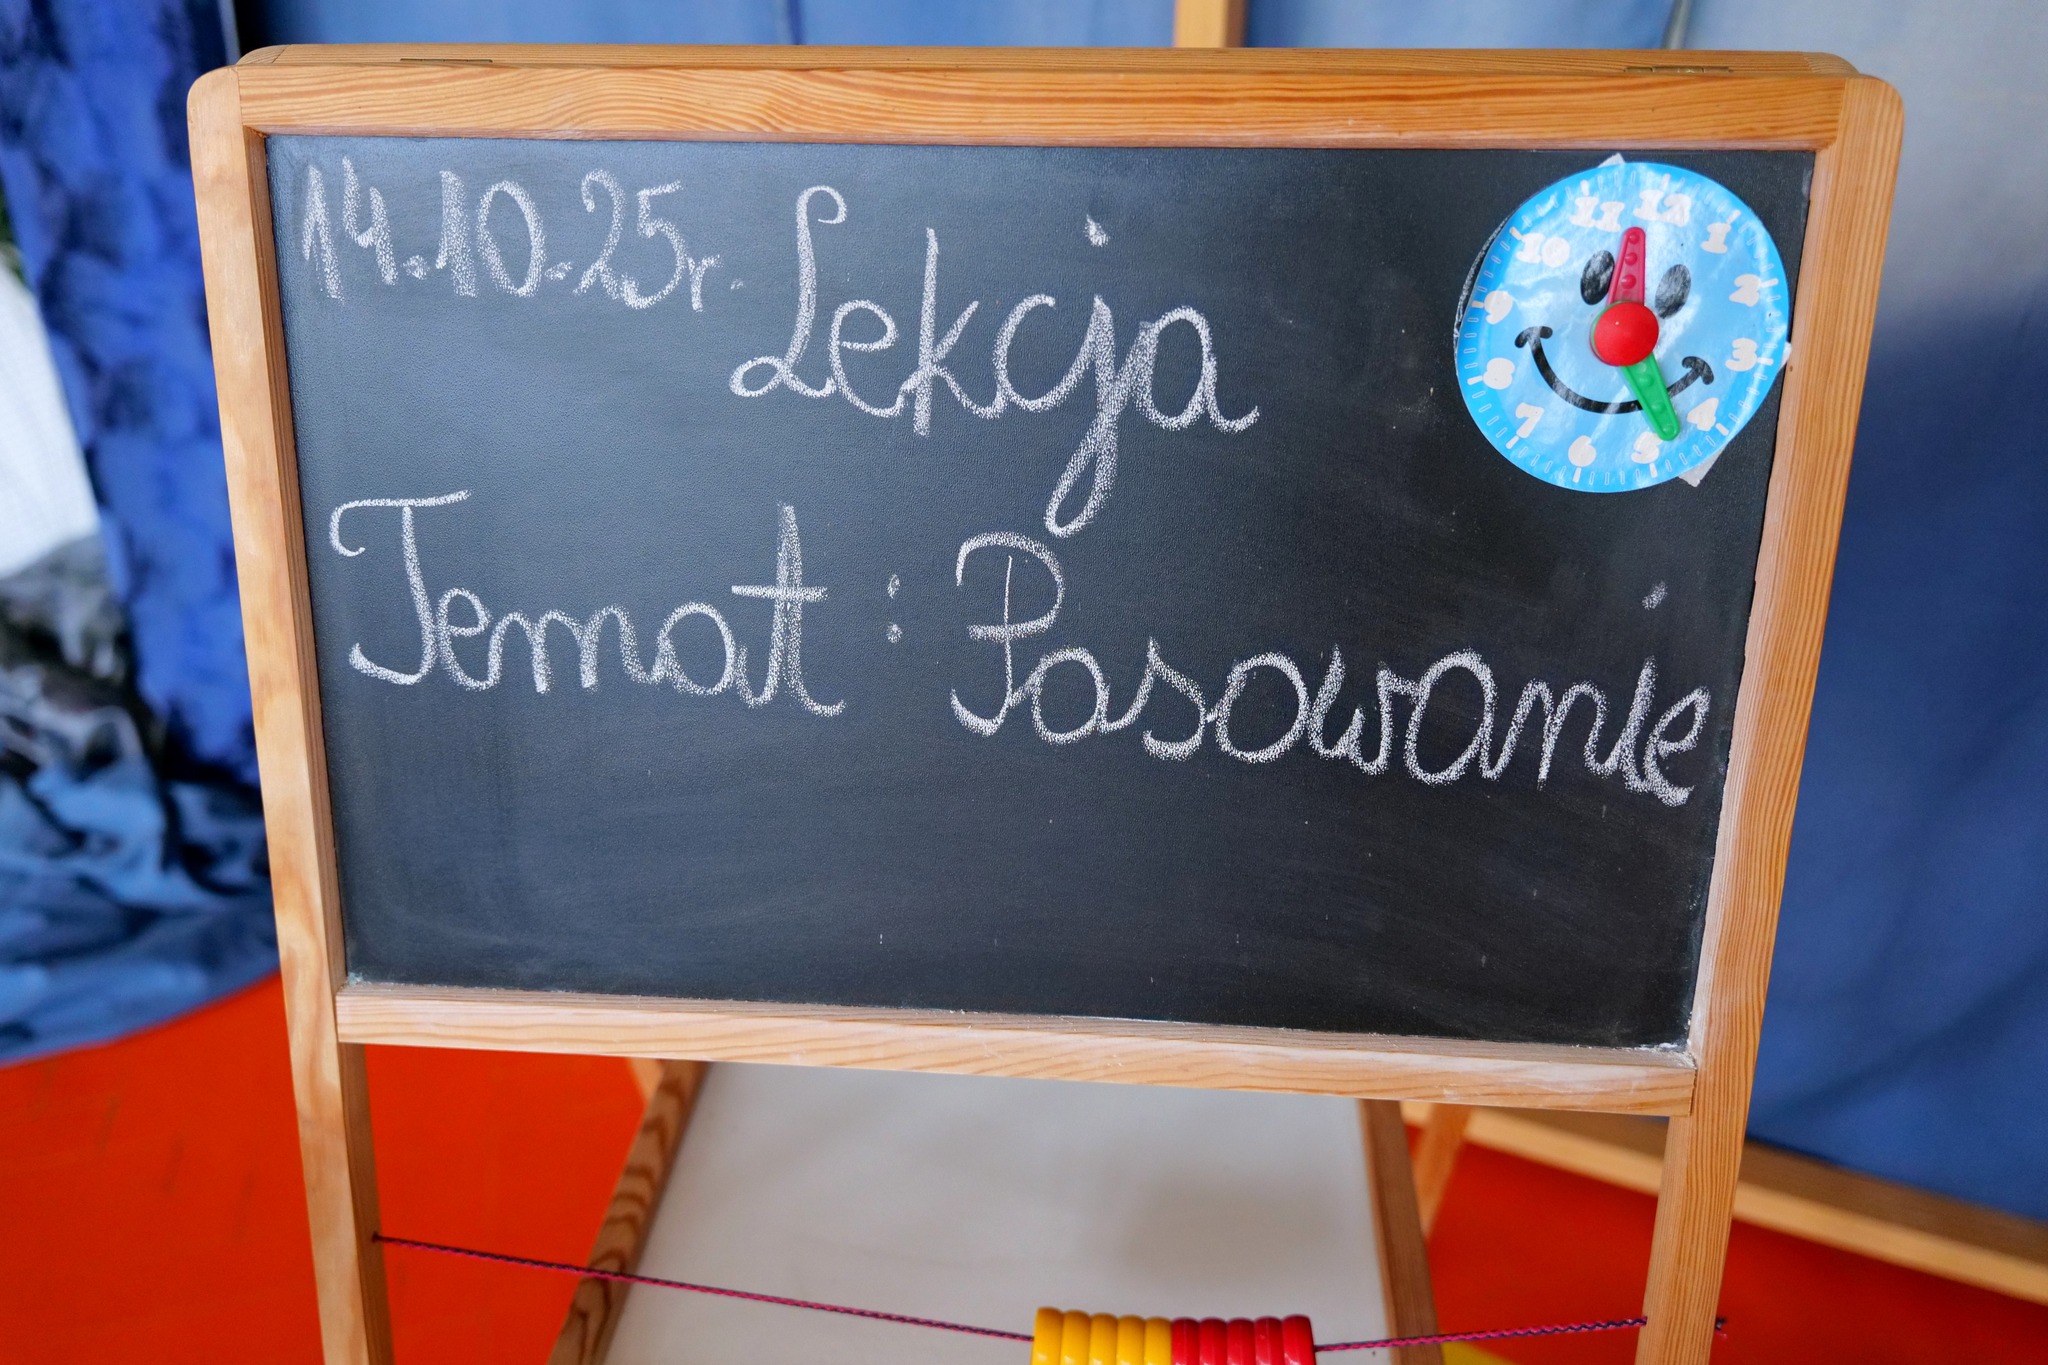 14.10.25r. Lekcja
Temat : Pasowanie
11 12 1
10 2
9 3
8 4
7 6 5